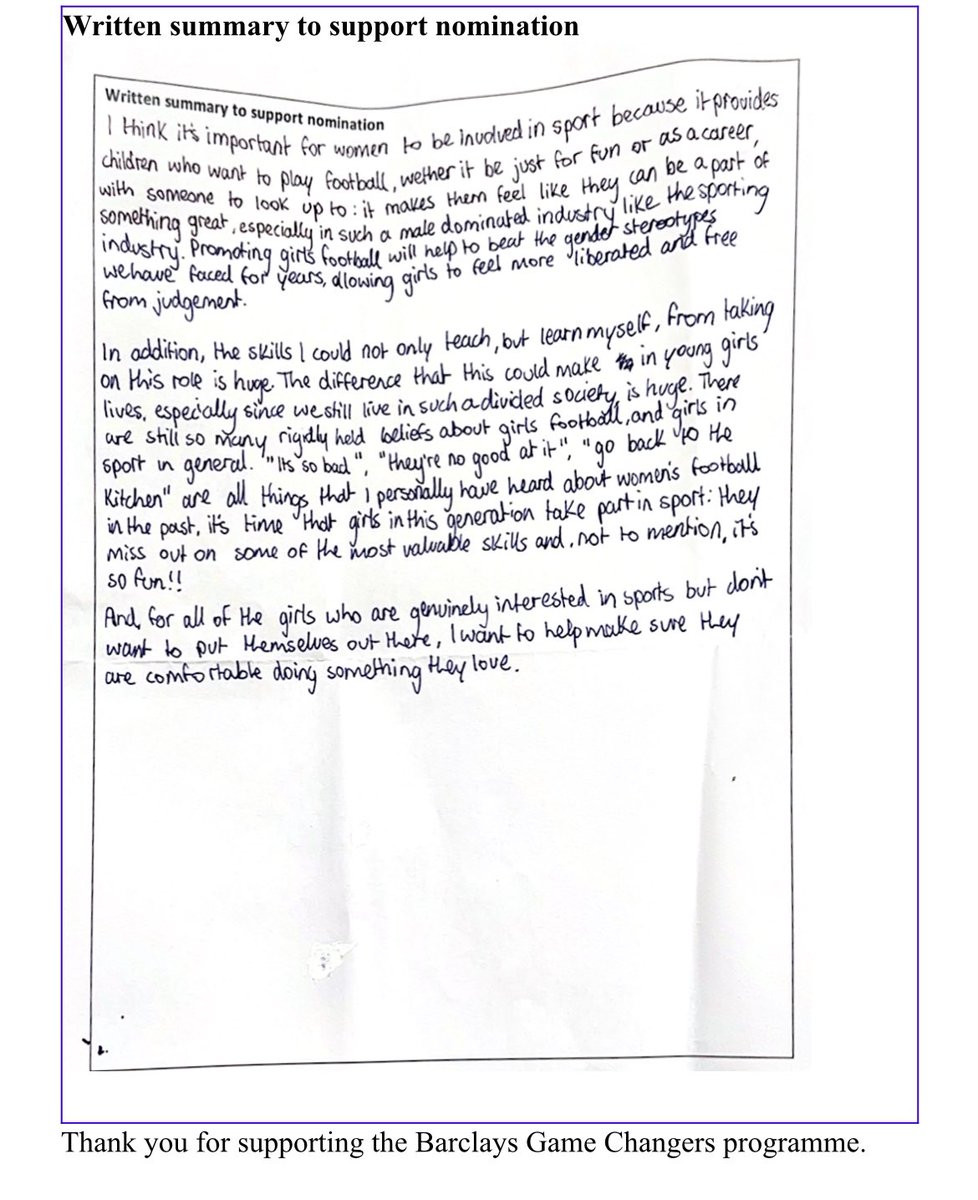 Written summary to support nomination
Written summary to support nomination
I think it's important for women to be involved in sport because it provides
children who want to play football, wether it be just for fun or as a career,
with someone to look up to: it makes them feel like they can be a part of
something great, especially in such a male dominated industry like the sporting
industry. Promoting girls football will help to beat the gender stereotypes
we have faced for years, allowing girls to feel more liberated and free
from judgement.
In addition, the skills I could not only teach, but learn myself, from taking
on this role is huge. The difference that this could make in young girls
lives, especially since we still live in such a divided society, is huge. There
are still so many rigidly held beliefs about girls football, and girls in
sport in general. "Its so bad", "they're no good at it", "go back to the
Kitchen" are all things that I personally have heard about women's football
in the past, it's time that girls in this generation take part in sport: they
miss out on some of the most valuable skills and, not to mention, it's
so fun!!
And, for all of the girls who are genuinely interested in sports but don't
want to put themselves out there, I want to help make sure they
are comfortable doing something they love.
Thank you for supporting the Barclays Game Changers programme.